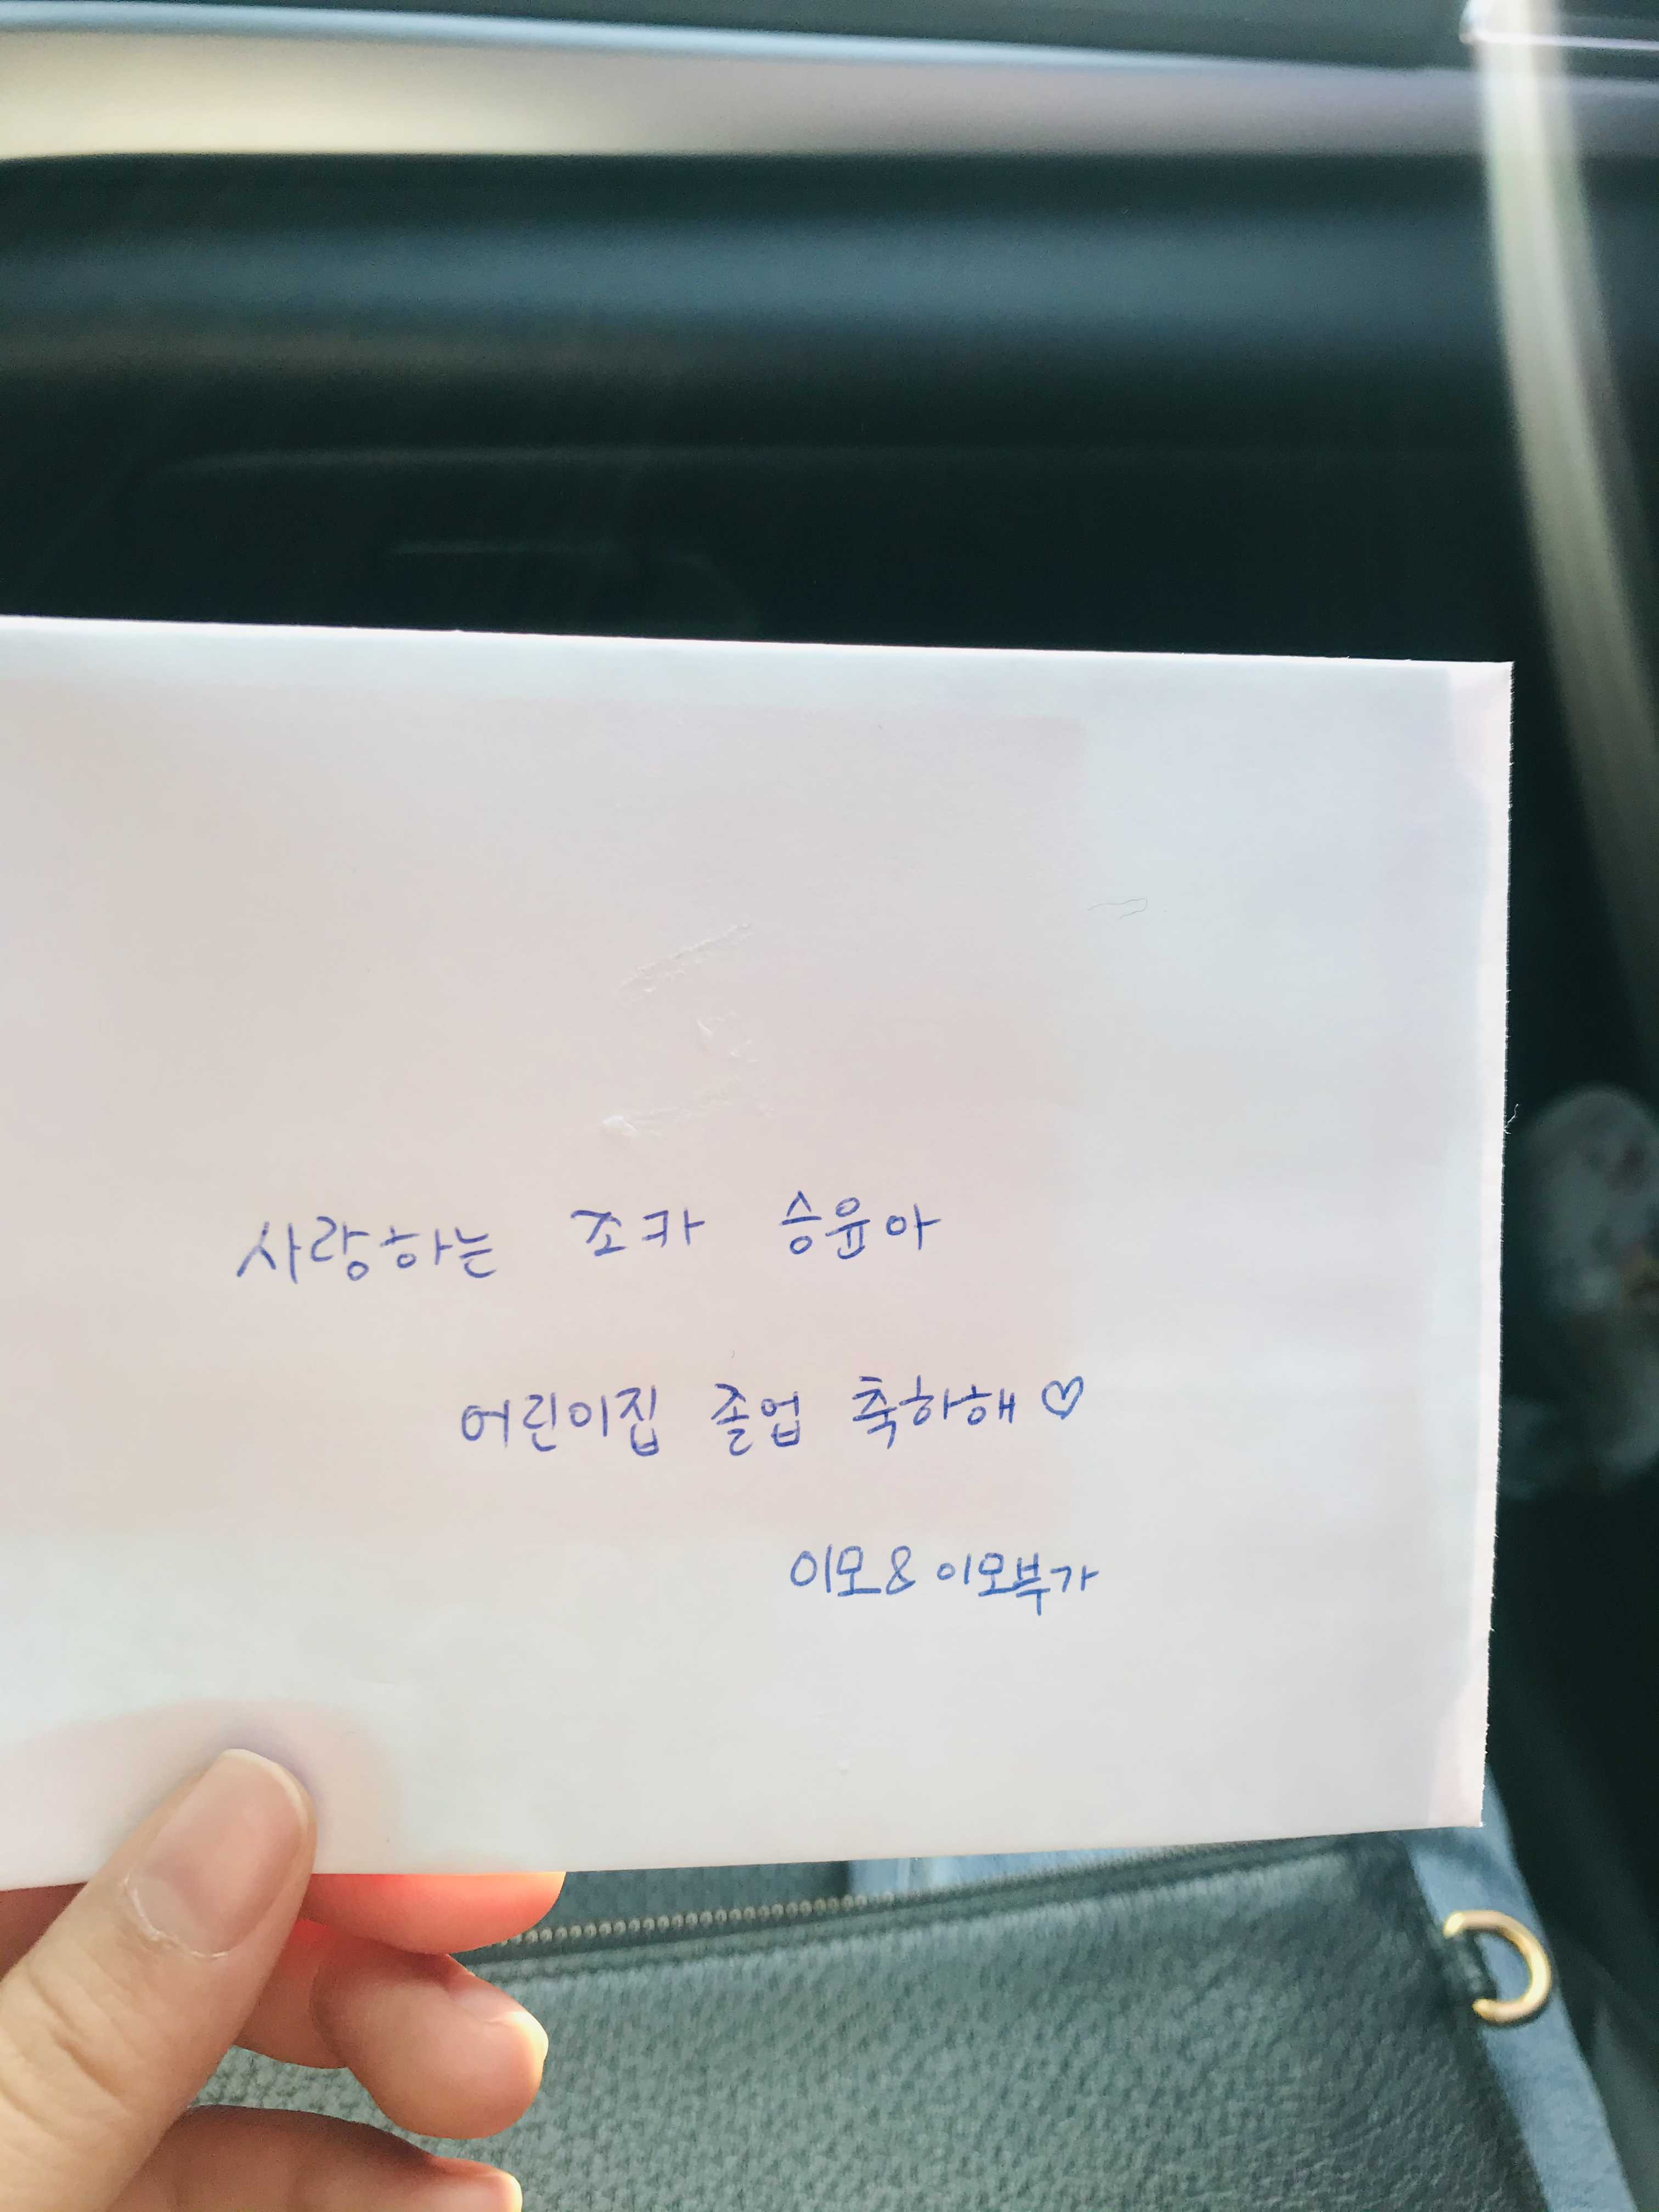 사랑하는 조카 승윤아
어린이집 졸업 축하해♡
이모&이모부가